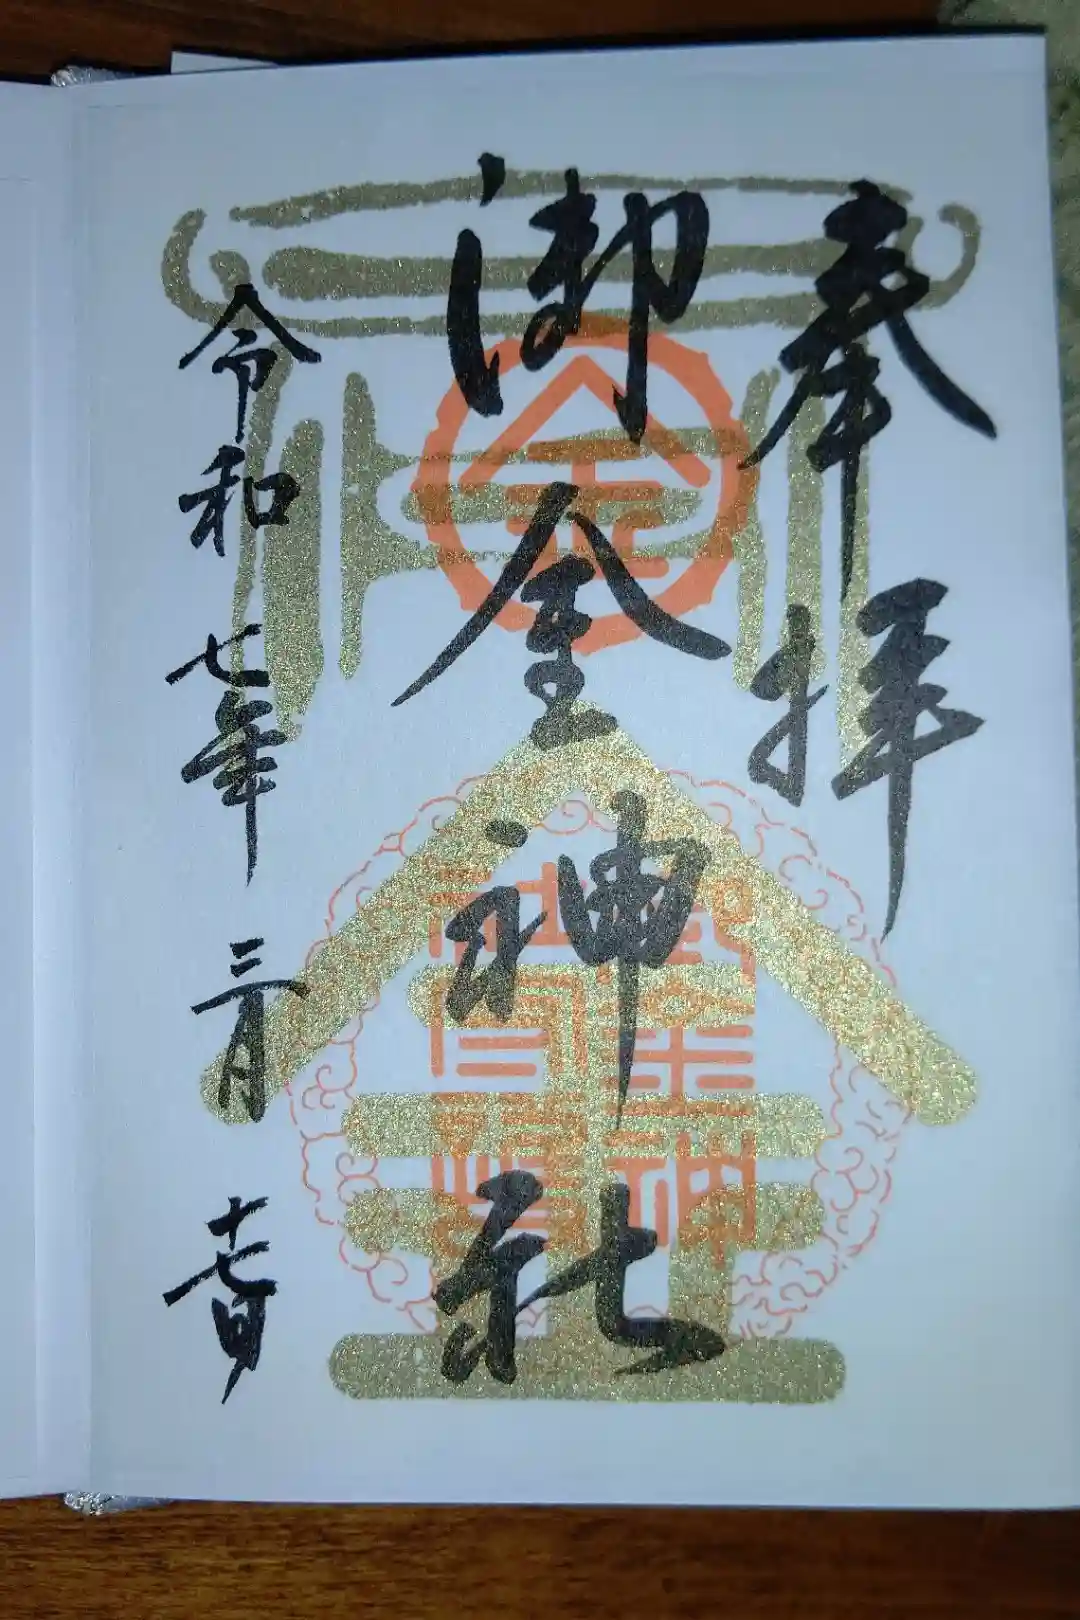 奉拝
御金神社
令和七年三月十七日
金
御金神
社之印璽